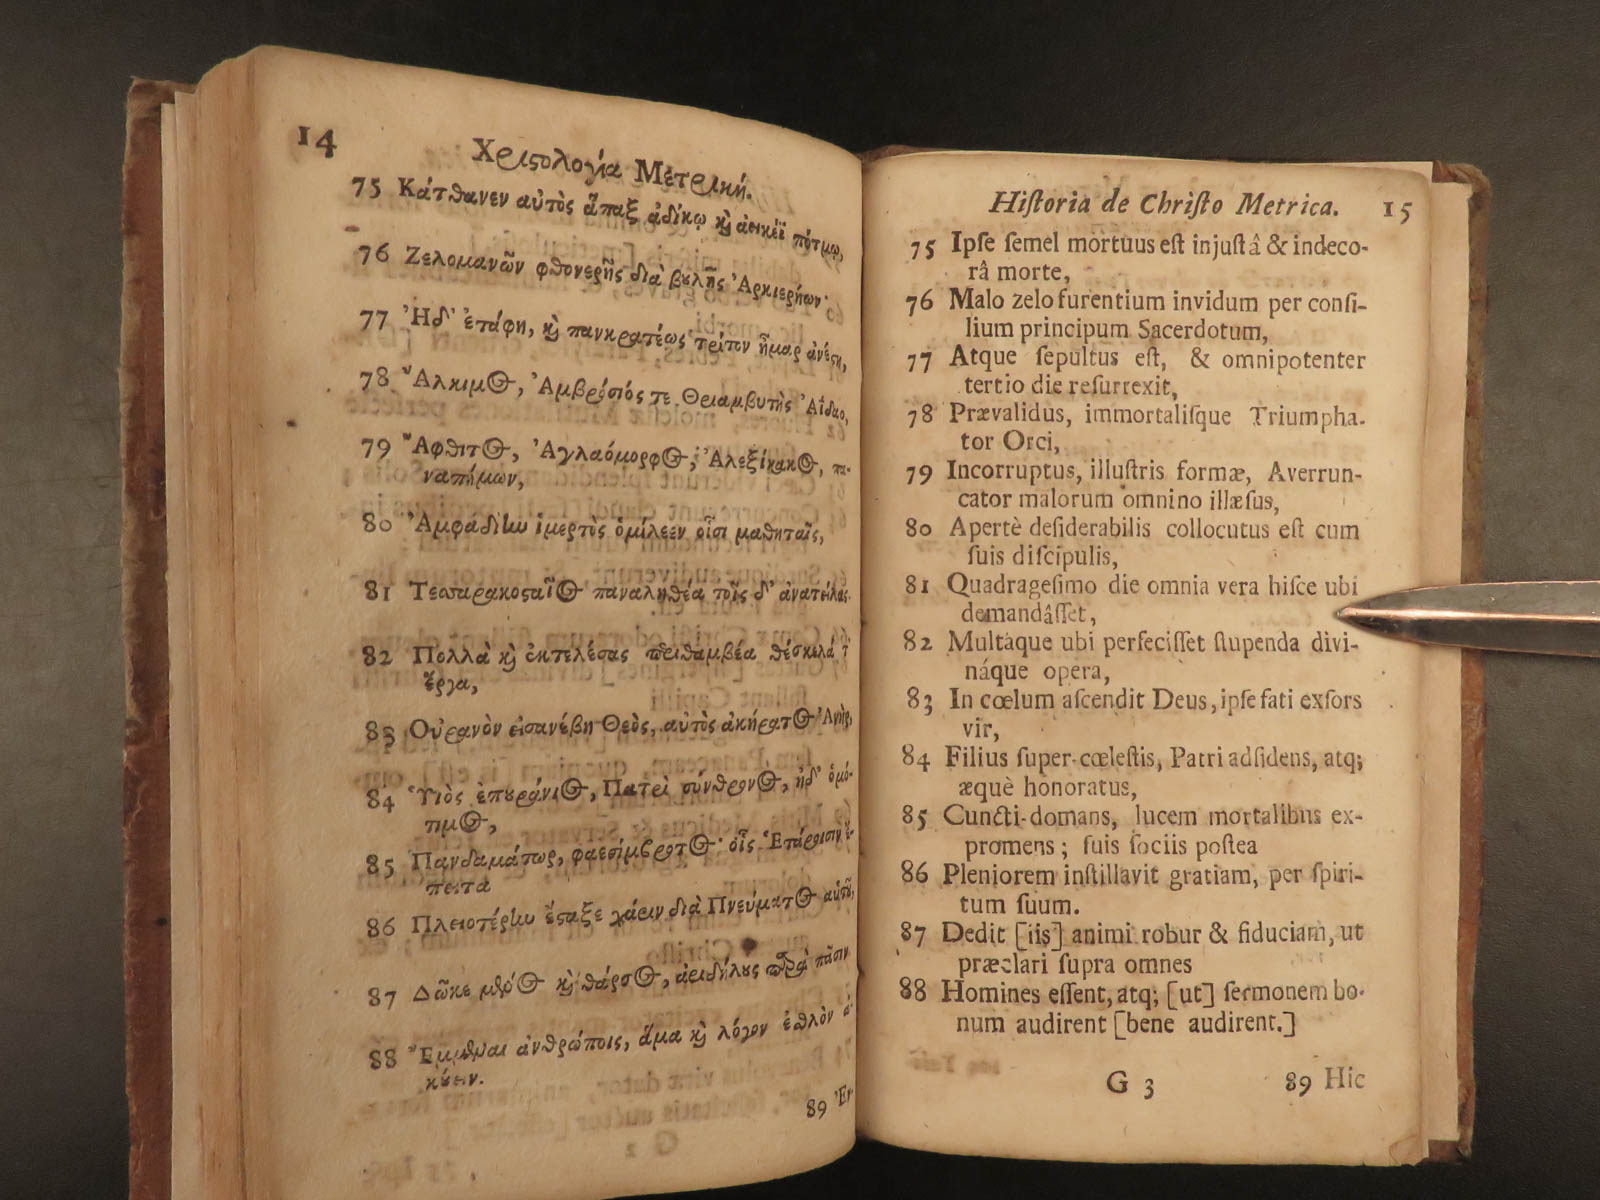 14
Χριϛολογία Μετρική.
75 Κάτθανεν αὐτὸς ἅπαξ ἀδίκῳ ϗ̀ ἀεικέϊ πότμῳ,
76 Ζηλομανῶν φθονερῆς διὰ βȣλῆς Ἀρχιερήων·
77 Ἠδ' ἐτάφη, ϗ̀ πανκρατέως τρίτον ἦμαρ ἀνέϛη,
78 Ἄλκιμ@, Ἀμβρόσιός τε Θριαμβυτὴς Ἀΐδαο,
79 Ἄφθιτ@, Ἀγλαόμορφ@, Ἀλεξίκακ@, πα-
ναπήμων,
80 Ἀμφάδίην ἱμερτὸς ὁμίλεεν οἷσι μαθηταῖς,
81 Τεσσαρακοϛαῖ@ παναληθέα τοῖς δ' ἀνατείλας
82 Πολλὰ ϗ̀ ἐκτελέσας περιθαμβέα θέσκελά τ'
ἔργα,
83 Οὐρανὸν εἰσανέβη Θεὸς, αὐτὸς ἀκήρατ@ Ἀνὴρ,
84 Ὑιὸς ἐπȣράνι@, Πατρὶ σύνθρον@, ἠδ' ὁμό-
τιμ@,
85 Πανδαμάτωρ, φαεσίμβροτ@· οἷς Ἑτάροισιν ἔ-
πειτα
86 Πλειοτέρην ἔϛαξε χάριν διὰ Πνεύματ@ αὑτȣ͂,
87 Δῶκε μέν@ ϗ̀ θάρσ@, ἀριδήλȣς παρὰ πᾶσιν
88 Ἔμμεναι ἀνθρώποις, ἅμα ϗ̀ λόγον ἐθλὸν ἀ-
κȣ́ειν.
89 Ἐν-
Hiſtoria de Chriſto Metrica. 15
75 Ipſe ſemel mortuus eſt injuſtâ & indeco-
râ morte,
76 Malo zelo furentium invidum per conſi-
lium principum Sacerdotum,
77 Atque ſepultus eſt, & omnipotenter
tertio die reſurrexit,
78 Prævalidus, immortaliſque Triumpha-
tor Orci,
79 Incorruptus, illuſtris formæ, Averrun-
cator malorum omnino illæſus,
80 Apertè deſiderabilis collocutus eſt cum
ſuis diſcipulis,
81 Quadrageſimo die omnia vera hiſce ubi
demandâſſet,
82 Multàque ubi perfeciſſet ſtupenda divi-
náque opera,
83 In cœlum aſcendit Deus, ipſe fati exſors
vir,
84 Filius ſuper-cœleſtis, Patri adſidens, atq;
æquè honoratus,
85 Cuncti-domans, lucem mortalibus ex-
promens; ſuis ſociis poſtea
86 Pleniorem inſtillavit gratiam, per ſpiri-
tum ſuum.
87 Dedit [iis] animi robur & fiduciam, ut
præclari ſupra omnes
88 Homines eſſent, atq; [ut] ſermonem bo-
num audirent [bene audirent.]
G 3 89 Hic